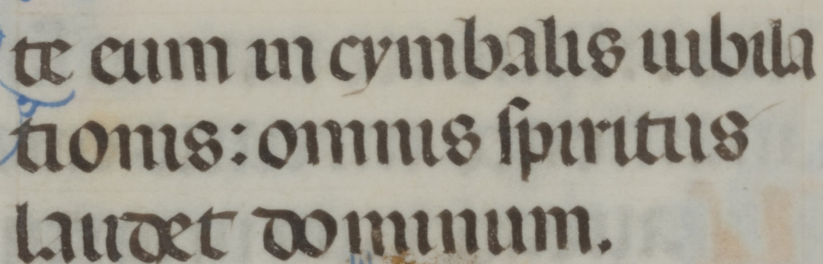 te eum in cymbalis iubila
tionis: omnis spiritus
laudet dominum.